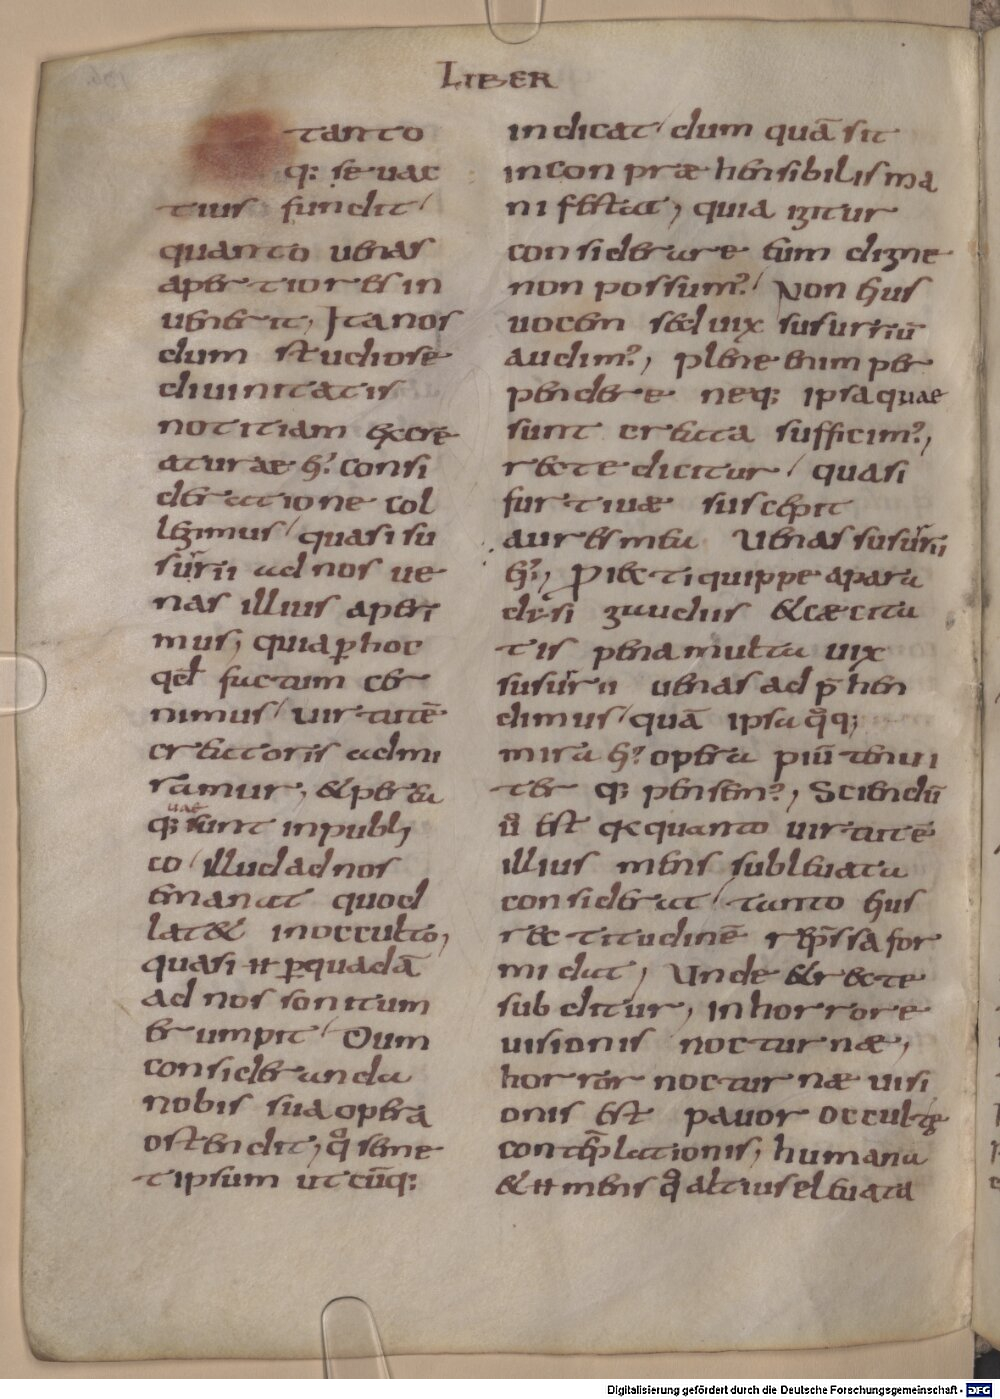 LIBER
tanto
q: se uac
tius fundit
quanto uenas
apertiores in
uenerit, Ita nos
dum studiose
diuinitatis
notitiam ex cre
aturae ei᾽ consi
deratione col
legimus quasi su
surrii ad nos ue
nas illius aperi
mus, quia ꝑ hoc
qd̄ factum cer
nimus uirtutē
creatoris admi
ramur, & per ea
q: uae sunt in publi
co illud ad nos
emanat quod
lat& in occulto,
quasi ·n· ꝑ quadā
ad nos sonitum
erumpit Dum
consideranda
nobis sua opera
ostendit, qͦ seme
tipsum utcūq:
indicat dum quā sit
inconpræhensibilis ma
nifestat, quia igitur
considerare eum digne
non possum᾽ Non eius
uocem sed uix susurriū
audim᾽, plene enim per
pendere neq: ipsa quae
sunt creata sufficim᾽,
recte dicitur quasi
furtiuæ suscepit
aures mea Uenas susurrii
ei᾽, Proiecti quippe a para
dysi gaudiis & cæcita
tis pena multati uix
susurrii uenas adp̄hen
dimus quā ipsa qͦq:
mira ei᾽ opera piū tenui
ter q: pensem᾽, Sciendū
ů est qa quanto uirtutē
illius mens subleuata
considerat tanto eius
rectitudinē rep̄ssa for
midat, Unde & recte
subditur, in horrore
uisionis nocturnæ,
horror nocturnæ uisi
onis est pauor occultę
contēplationis, humana
& ·n· mens qͦ altius eleuata
Digitalisierung gefördert durch die Deutsche Forschungsgemeinschaft - DFG